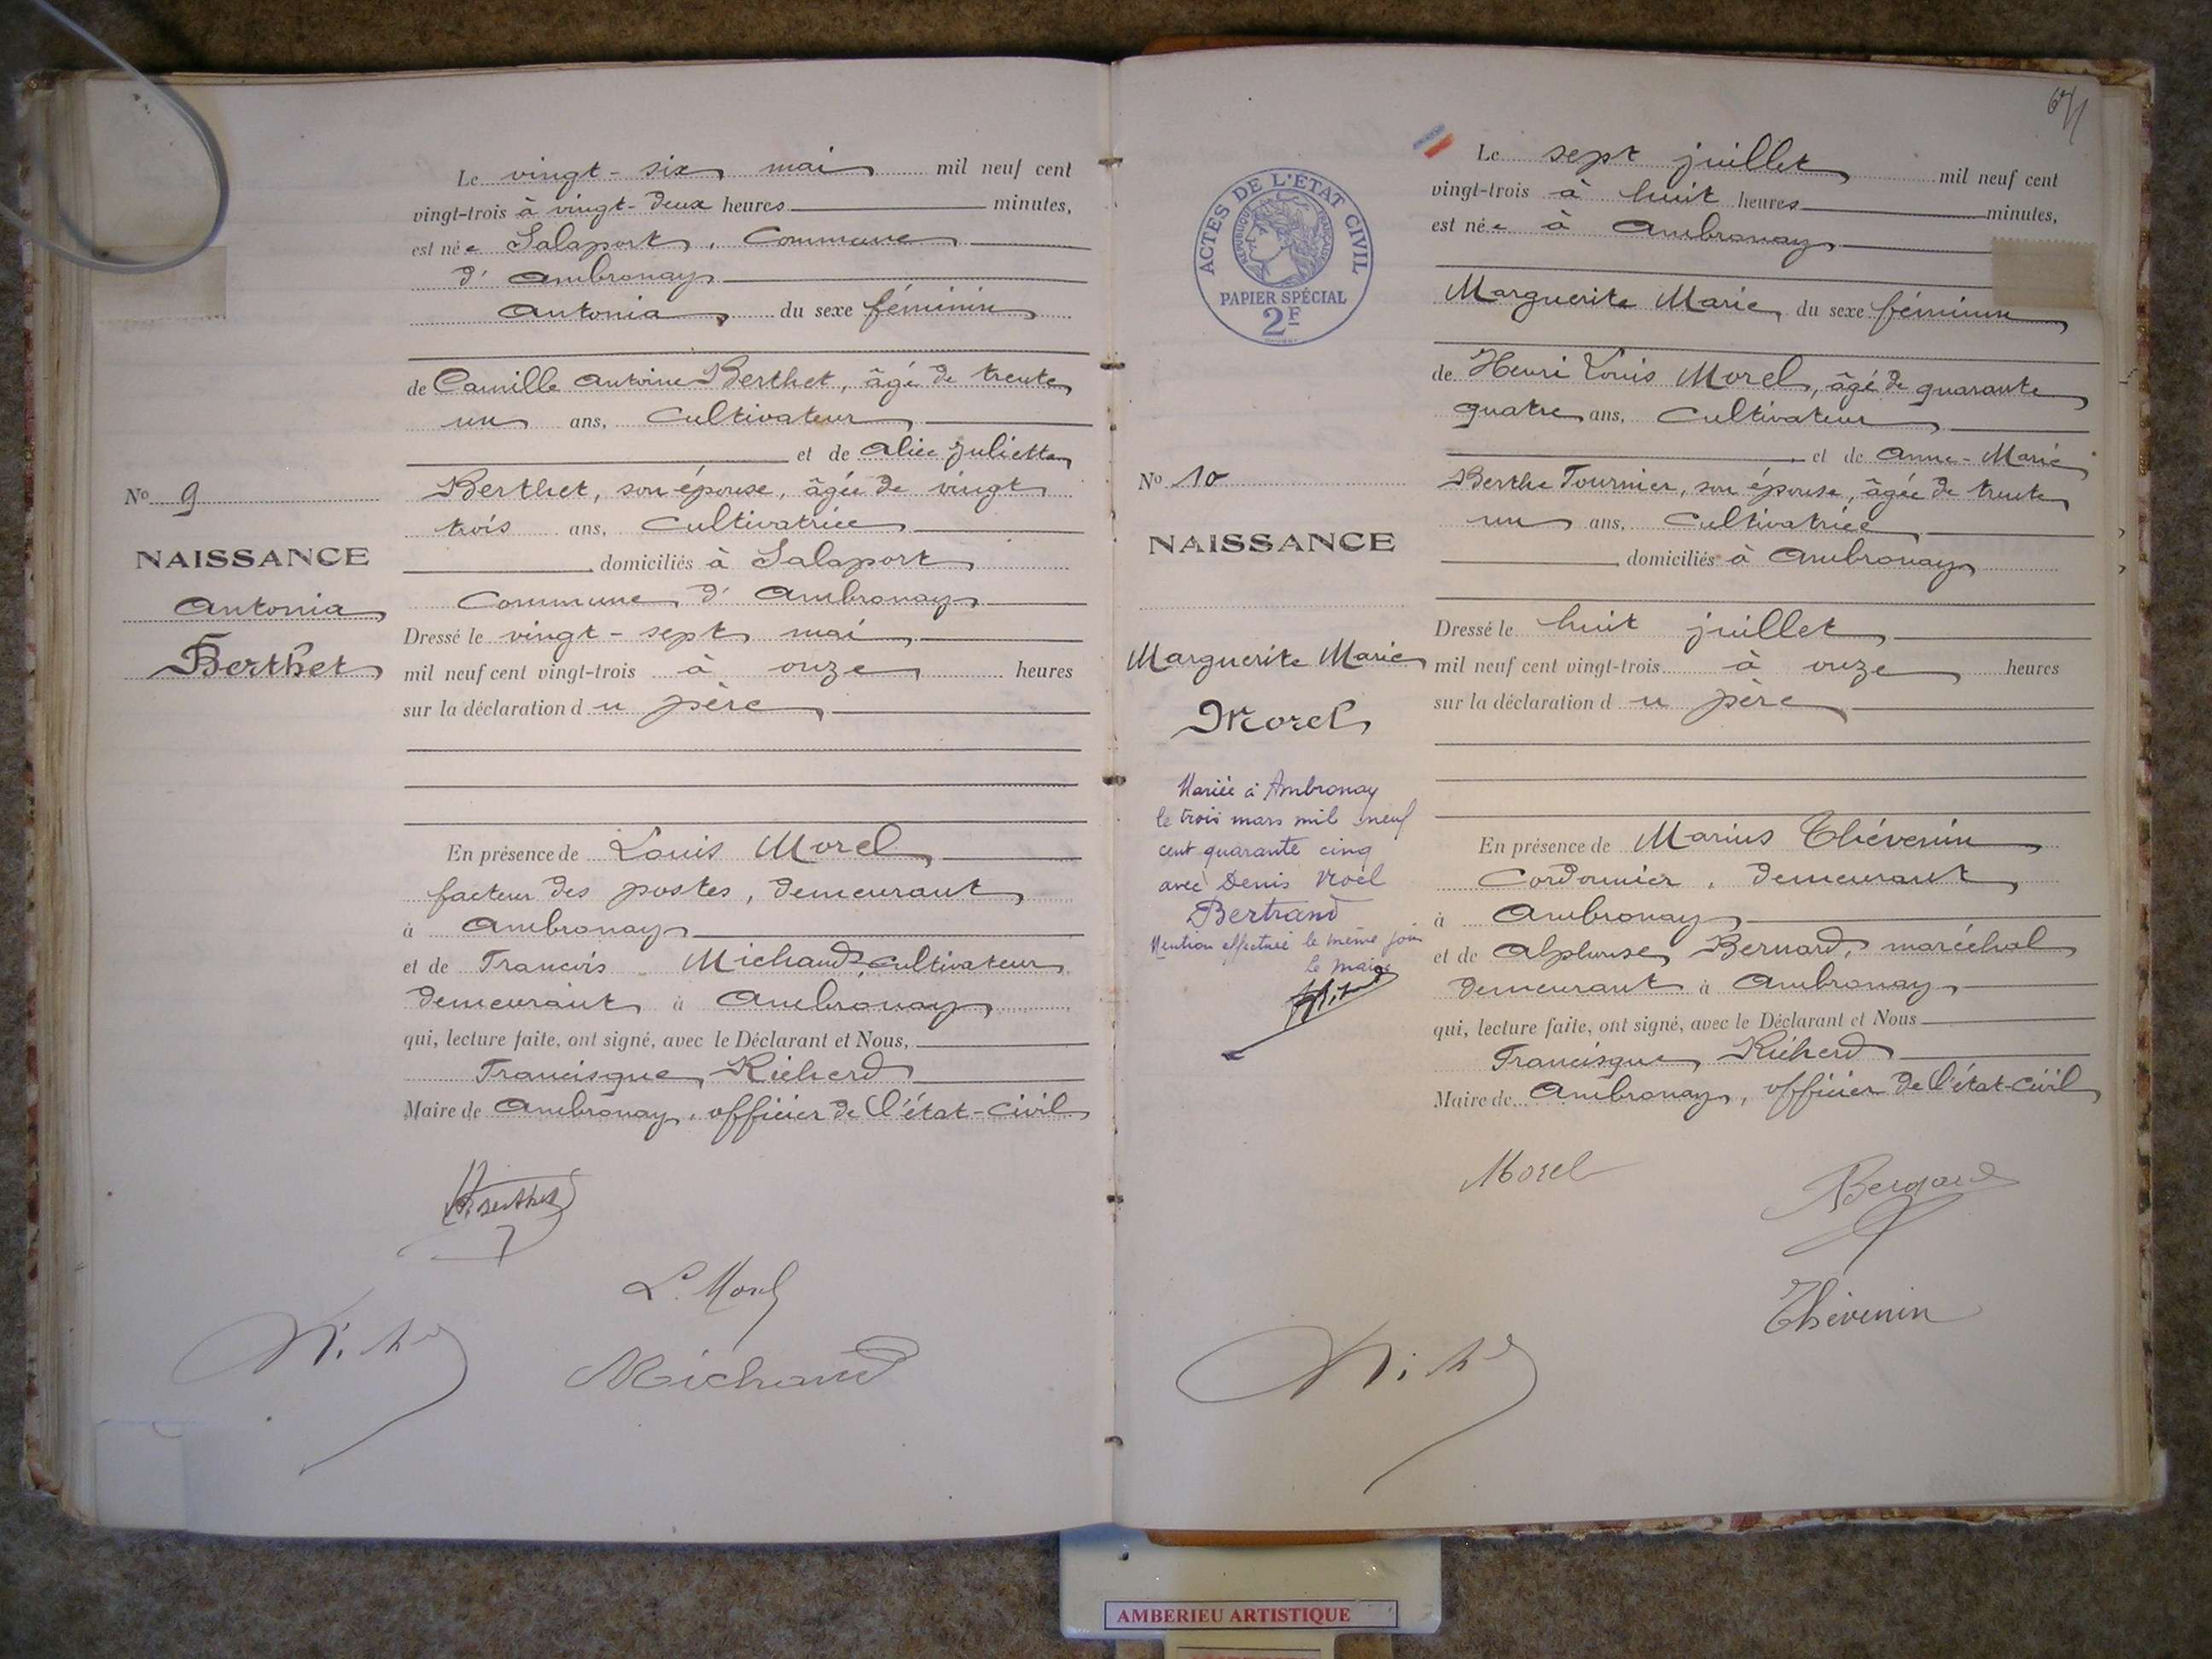 Le vingt-six mai mil neuf cent
vingt-trois à vingt-deux heures minutes,
est née Salaport, Commune
d'Ambronay
Antonia, du sexe féminin
de Camille Antoine Berthet, âgé de trente
un ans, Cultivateur
et de Alice Juliette
Berthet, son épouse, âgée de vingt
trois ans, Cultivatrice
domiciliés à Salaport
Commune d'Ambronay
Dressé le vingt-sept mai
mil neuf cent vingt-trois à onze heures
sur la déclaration du père
En présence de Louis Morel
facteur des postes, demeurant
à Ambronay
et de Francis Michaud, cultivateur
demeurant à Ambronay
qui, lecture faite, ont signé, avec le Déclarant et Nous,
Francisque Richerd
Maire de Ambronay, officier de l'état-civil
No 9
NAISSANCE
Antonia
Berthet
Berthet
L. Morel
Michaud
671
ACTES DE L'ÉTAT CIVIL
RÉPUBLIQUE FRANÇAISE
PAPIER SPÉCIAL
2F
Le sept juillet mil neuf cent
vingt-trois à huit heures minutes,
est née à Ambronay
Marguerite Marie, du sexe féminin
de Henri Louis Morel, âgé de quarante
quatre ans, Cultivateur
et de Anne-Marie
Berthe Tournier, son épouse, âgée de trente
un ans, Cultivatrice
domiciliés à Ambronay
Dressé le huit juillet
mil neuf cent vingt-trois à onze heures
sur la déclaration du père
En présence de Marius Thévenin
Cordonnier, demeurant
à Ambronay
et de Alphonse Bernard, maréchal
demeurant à Ambronay
qui, lecture faite, ont signé, avec le Déclarant et Nous
Francisque Richerd
Maire de Ambronay, officier de l'état-civil
No 10
NAISSANCE
Marguerite Marie
Morel
Mariée à Ambronay
le trois mars mil neuf
cent quarante cinq
avec Denis Noël
Bertrand
Mention effectuée le même jour
Le maire
Morel
Bernard
Thévenin
AMBERIEU ARTISTIQUE